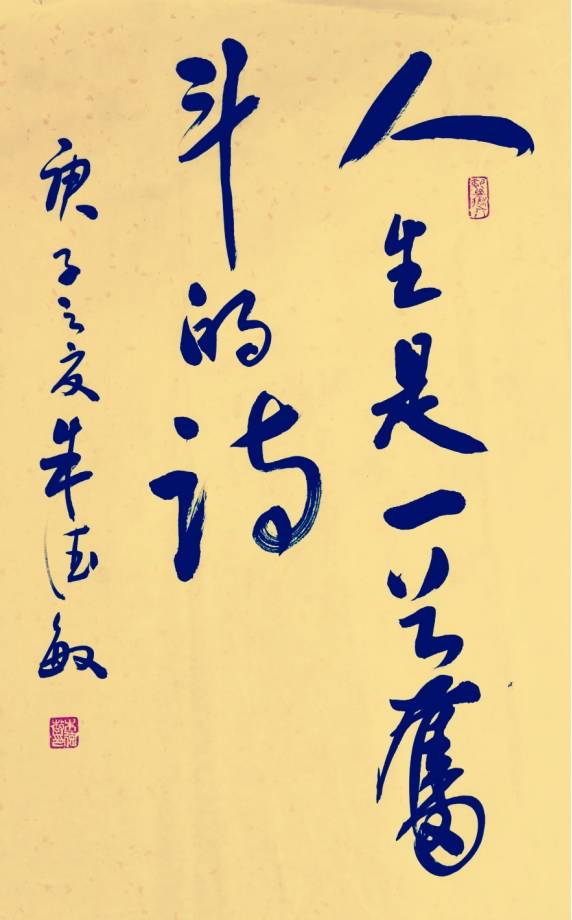 人生是一首奮
斗的诗
庚子之夏朱德敏